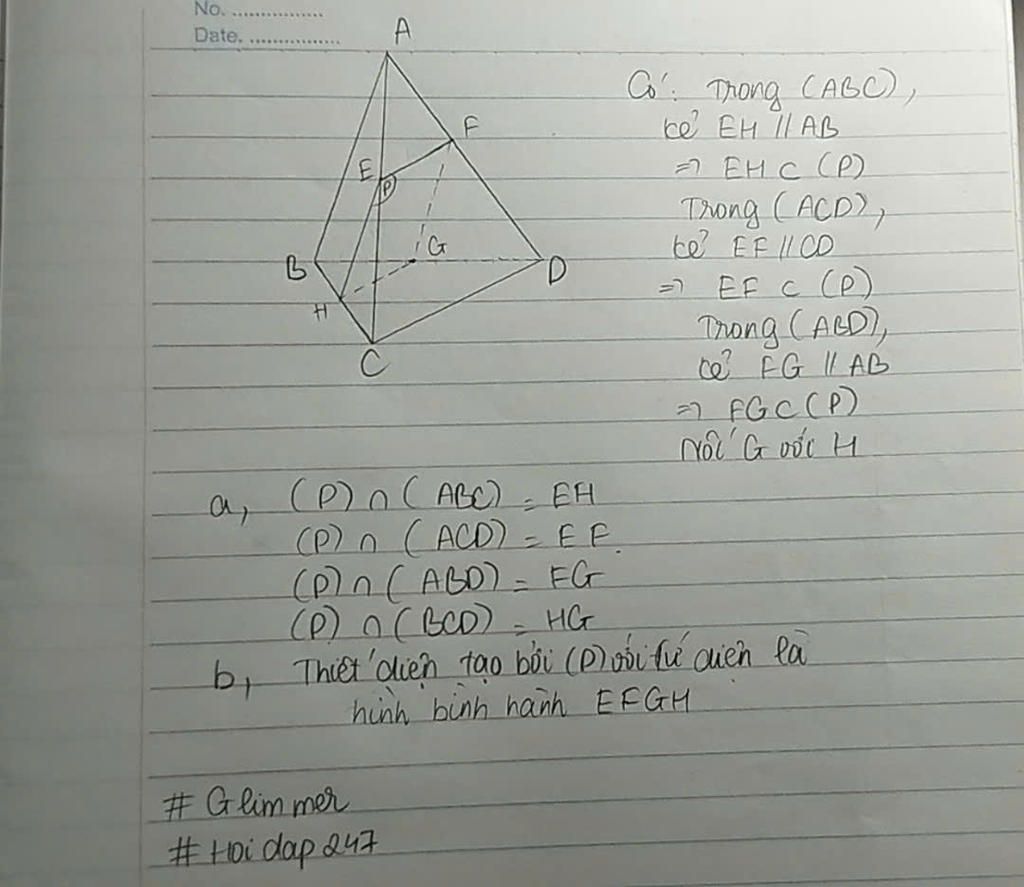 No. ................
Date. ................
A
F
E
P
B
G
D
H
C
Có: Trong (ABC),
kẻ EH // AB
=> EH ⊂ (P)
Trong (ACD),
kẻ EF // CD
=> EF ⊂ (P)
Trong (ABD),
kẻ FG // AB
=> FG ⊂ (P)
Nối G với H
a, (P) ∩ (ABC) = EH
(P) ∩ (ACD) = EF.
(P) ∩ (ABD) = FG
(P) ∩ (BCD) = HG
b, Thiết diện tạo bởi (P) với tứ diện là
hình bình hành EFGH
# Glimmer
# Hoidap247